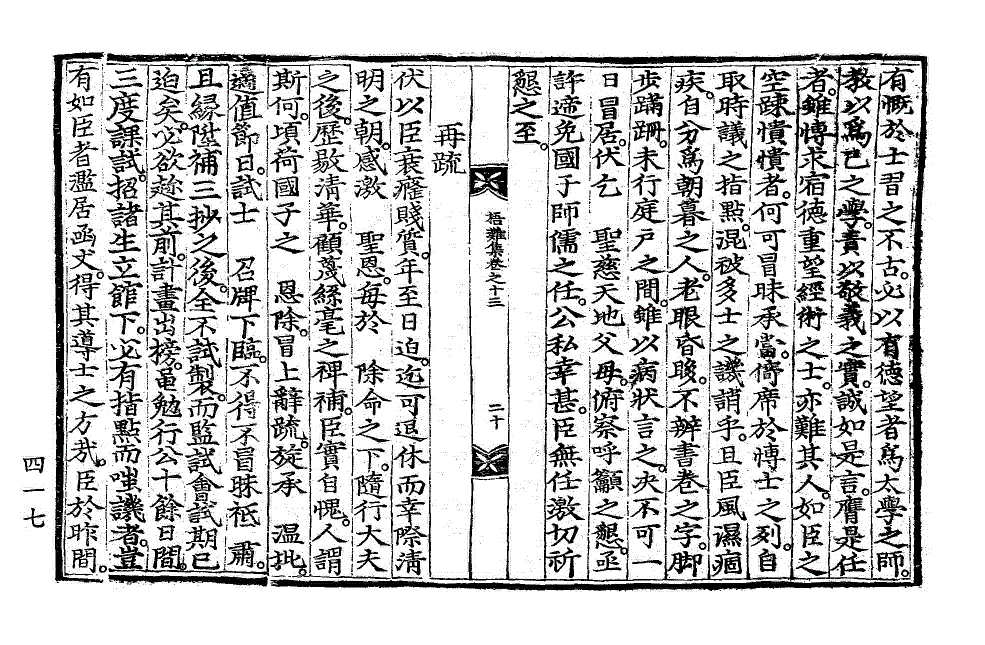 有慨於士習之不古必以有德望者爲太學之師
教以爲己之學責以敬義之實誠如是言膺是任
者雖博求宿德重望經術之士亦難其人如臣之
空踈憒憒者何可冒昧承當僑席於博士之列自
取時議之指點混被多士之譏誚乎且臣風濕痼
疾自分爲朝暮之人老眼昏睃不辨書卷之字脚
步蹣跚未行庭戶之間雖以病狀言之決不可一
日冒居伏乞　聖慈天地父母俯察呼籲之懇亟
許遞免國子師儒之任公私幸甚臣無任激切祈
懇之至
梧難集卷之十三　二十
再疏
伏以臣衰癃賤質年至日迫迄可退休而幸際清
明之朝感激　聖恩每於　除命之下隨行大夫
之後歷敭清華顧蔑絲毫之裨補臣實自愧人謂
斯何頃荷國子之　恩除冒上辭疏旋承　溫批
適值節日試士　召牌下臨不得不冒昧祗　肅
且緣陞補三抄之後全不試製而監試會試期已
迫矣必欲趁其前計畫出榜黽勉行公十餘日間
三度課試招諸生立館下必有指點而嗤譏者豈
有如臣者濫居函丈得其導士之方哉臣於昨間
四一七